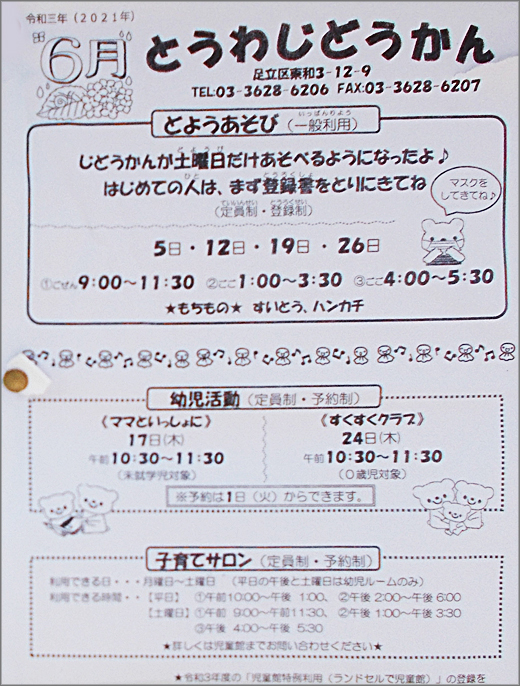 令和三年(2021年)
6月 とうわじどうかん
足立区東和3-12-9
TEL:03-3628-6206 FAX:03-3628-6207
どようあそび(一般利用)
じどうかんが土曜日だけあそべるようになったよ♪
はじめての人は、まず登録書をとりにきてね
(定員制・登録制)
マスクを
してきてね♪
5日・12日・19日・26日
①ごぜん9:00～11:30 ②ごご1:00～3:30 ③ごご4:00～5:30
★もちもの★ すいとう、ハンカチ
幼児活動(定員制・予約制)
《ママといっしょに》
17日(木)
午前10:30～11:30
(未就学児対象)
《すくすくクラブ》
24日(木)
午前10:30～11:30
(0歳児対象)
※予約は1日(火)からできます。
子育てサロン(定員制・予約制)
利用できる日・・・月曜日～土曜日 (平日の午後と土曜日は幼児ルームのみ)
利用できる時間・・【平日】 ①午前10:00～午後 1:00、 ②午後 2:00～午後 6:00
【土曜日】①午前 9:00～午前11:30、 ②午後 1:00～午後 3:30
③午後 4:00～午後 5:30
★詳しくは児童館までお問い合わせください★
★令和3年度の「児童館特例利用(ランドセルで児童館)」の登録を